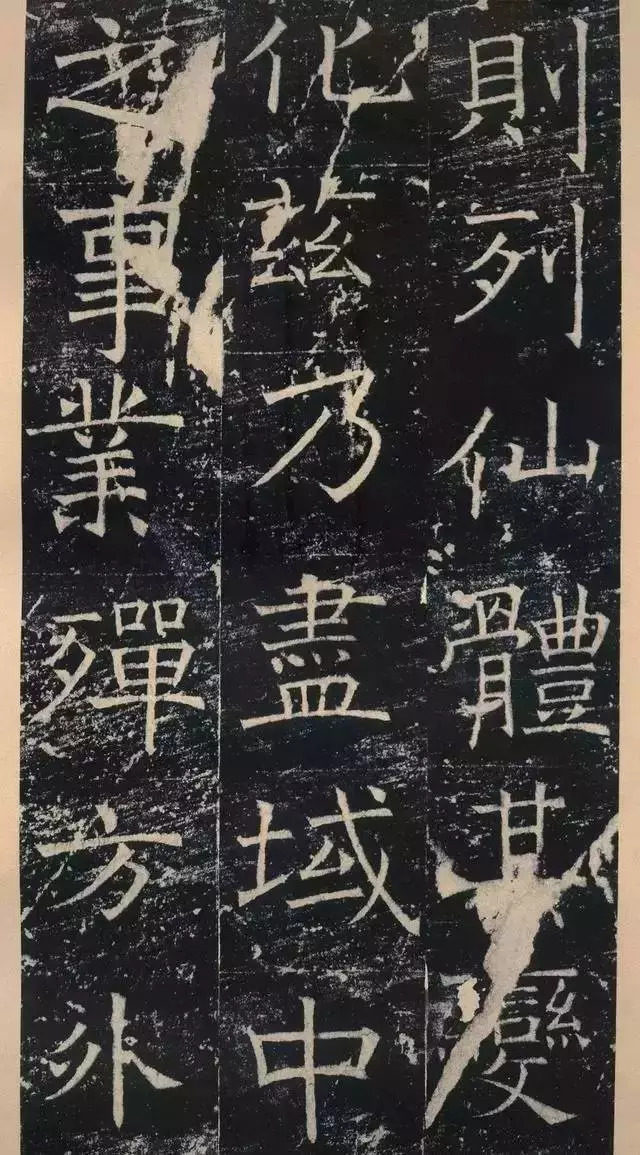 則列仙體其變
化兹乃盡域中
之事業殫方外